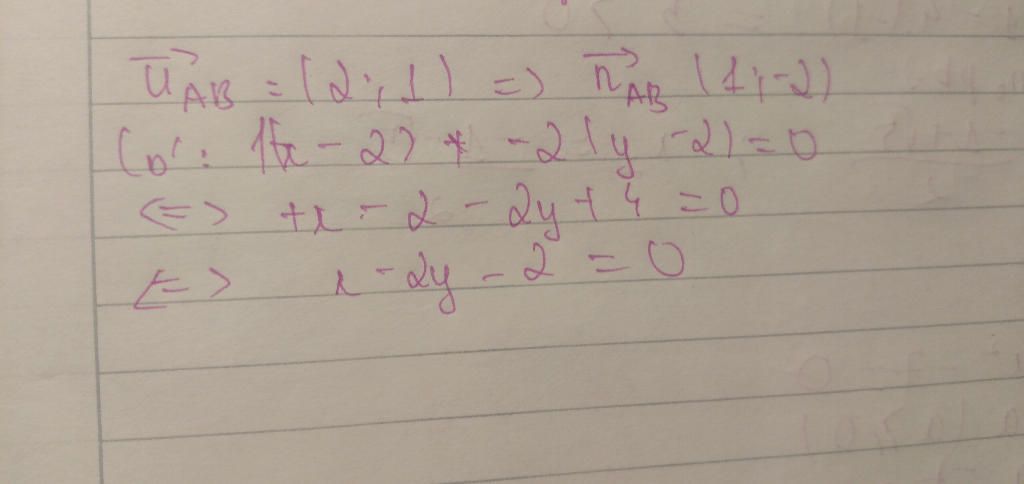 u⃗AB = (2; 1) => n⃗AB (1; -2)
Có: 1(x - 2) * -2(y - 2) = 0
<=> +x - 2 - 2y + 4 = 0
<=> x - 2y - 2 = 0